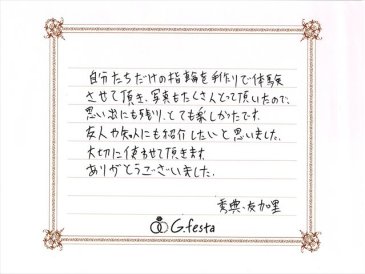 自分たちだけの指輪を手作りで体験
させて頂き、写真もたくさんとって頂いたので、
思い出にも残り、とても楽しかったです。
友人や知人にも紹介したいと思いました。
大切に使わせて頂きます。
ありがとうございました。
秀典・友加里
G.festa